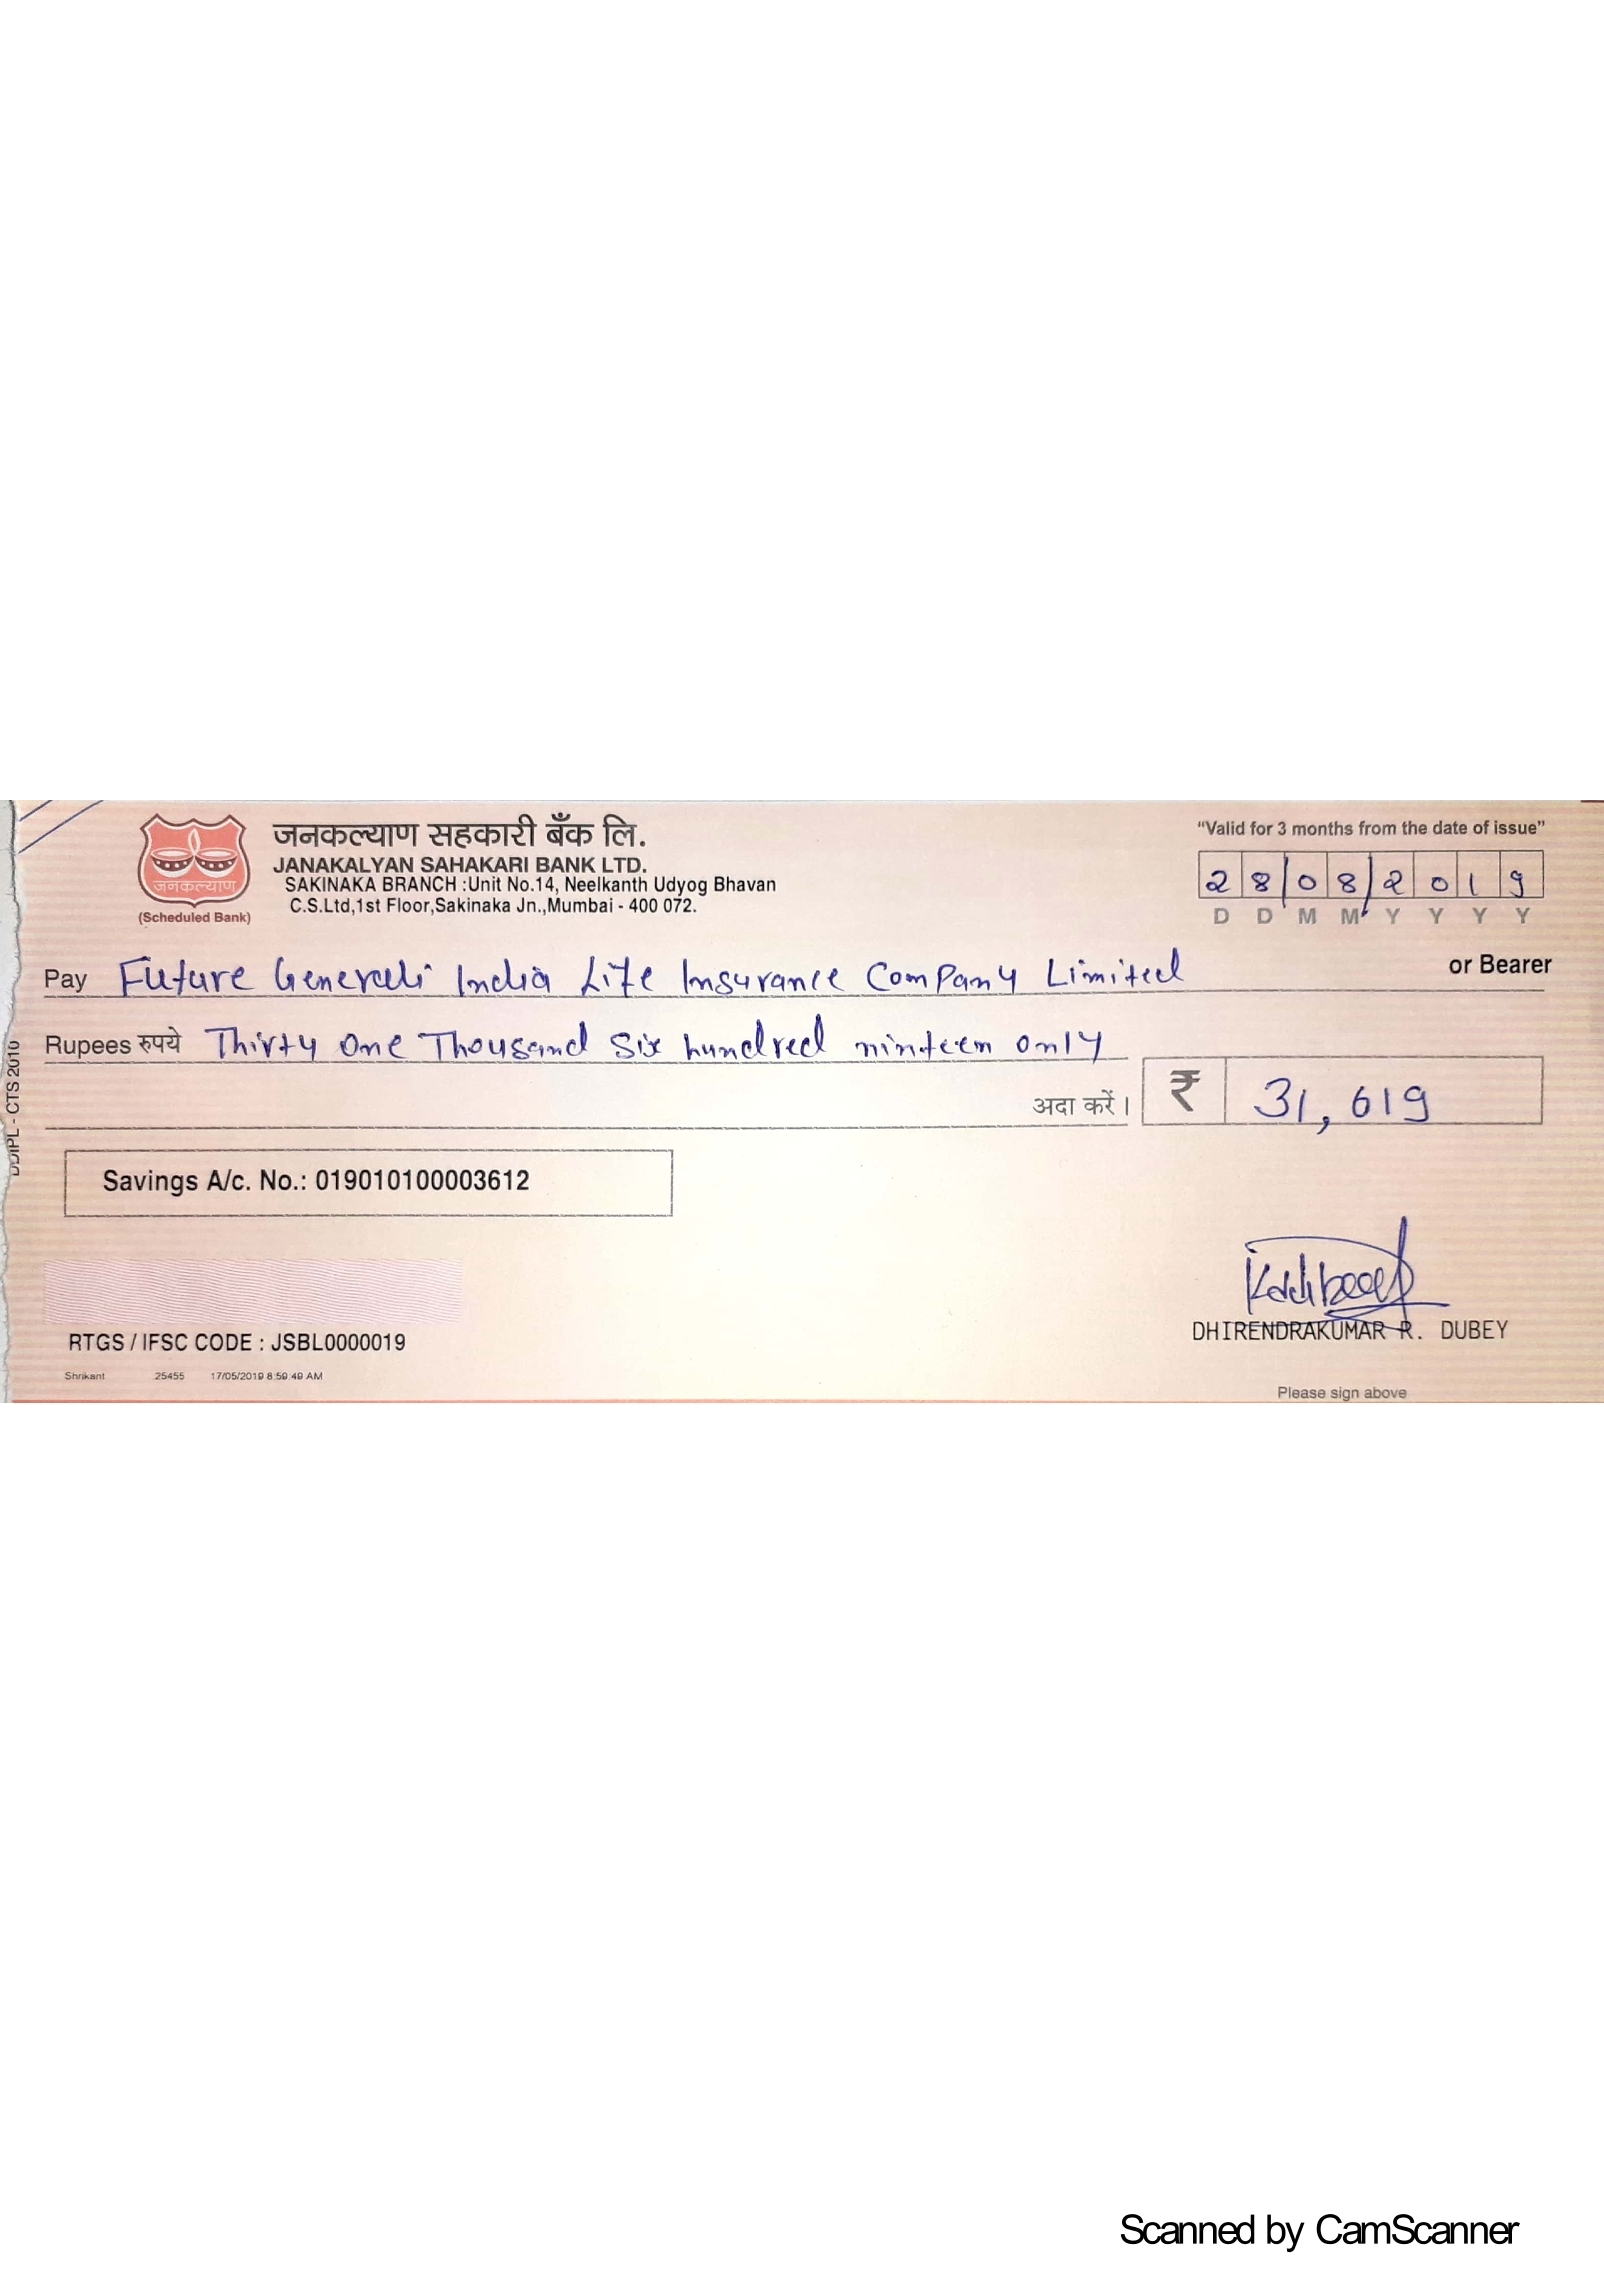 जनकल्याण सहकारी बँक लि.
JANAKALYAN SAHAKARI BANK LTD.
SAKINAKA BRANCH :Unit No.14, Neelkanth Udyog Bhavan
C.S.Ltd,1st Floor,Sakinaka Jn.,Mumbai - 400 072.
जनकल्याण
(Scheduled Bank)
"Valid for 3 months from the date of issue"
28/08/2019
D D M M Y Y Y Y
Pay Future Generali India Life Insurance Company Limited or Bearer
Rupees रुपये Thirty One Thousand Six hundred ninteen only
अदा करें। ₹ 31,619
DDIPL - CTS 2010
Savings A/c. No.: 019010100003612
RTGS / IFSC CODE : JSBL0000019
DHIRENDRAKUMAR R. DUBEY
Shrikant 25455 17/05/2019 8:59:49 AM
Please sign above
Scanned by CamScanner